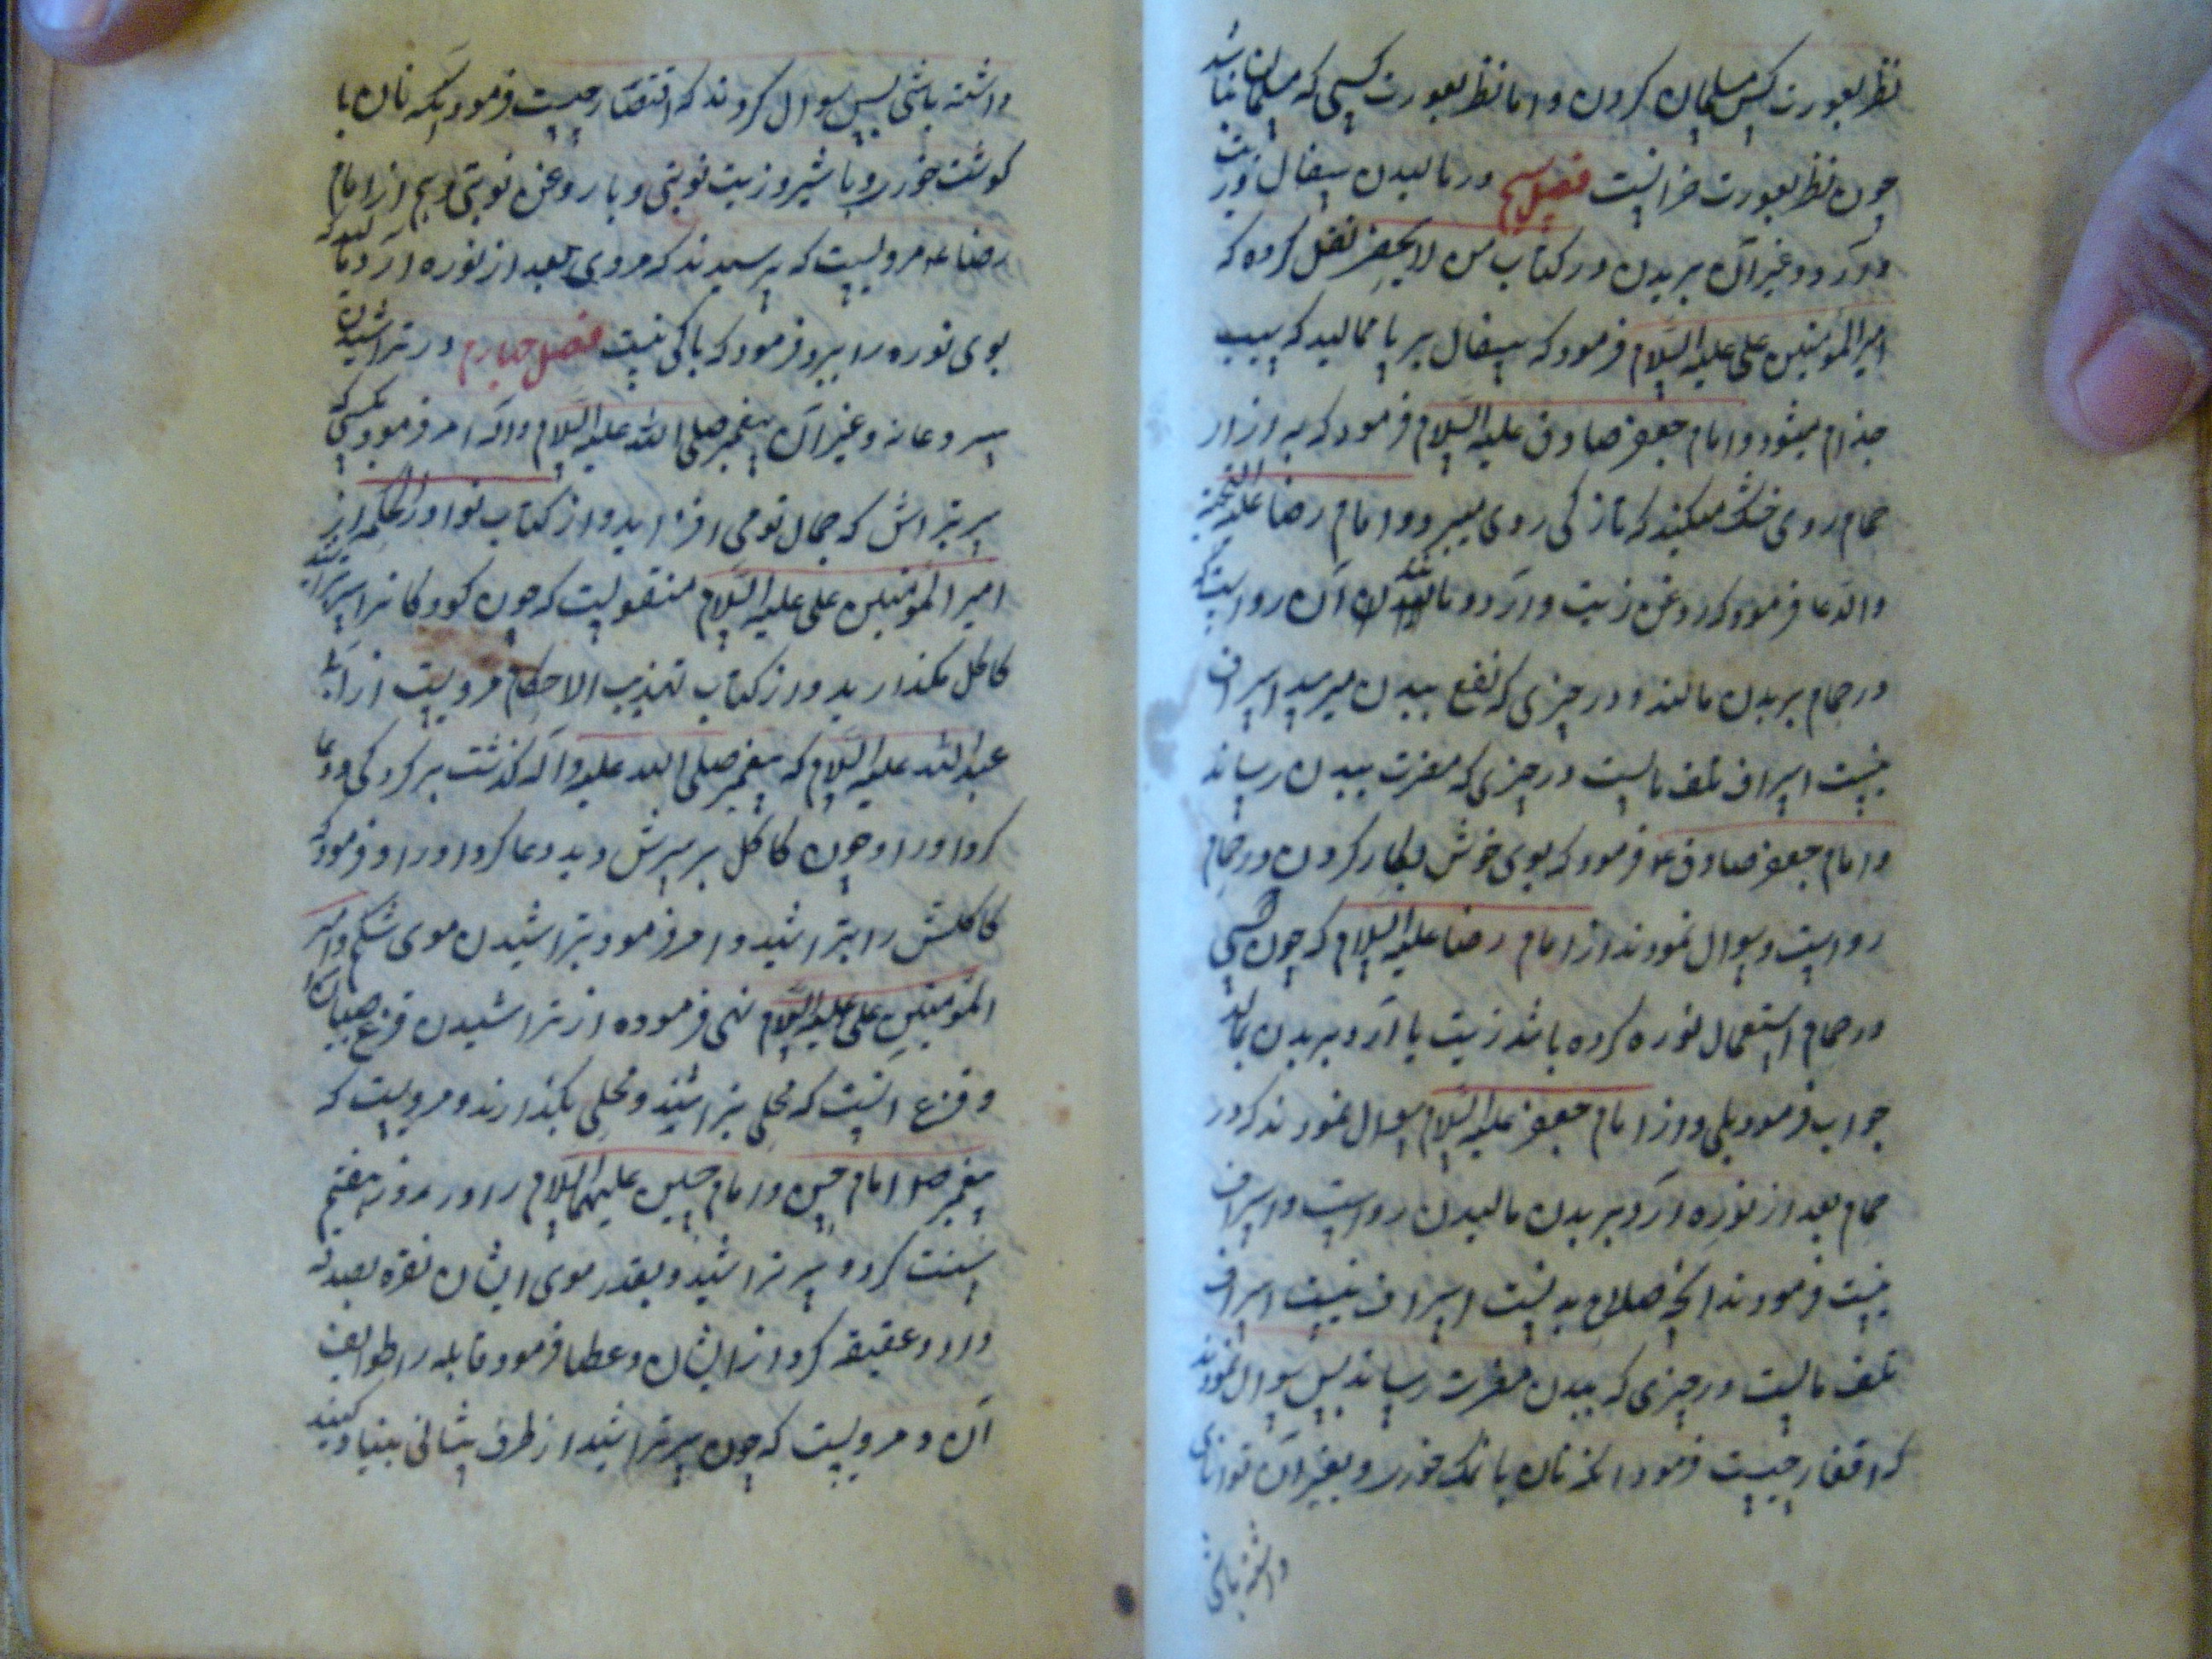 نظر بعورت کس مسلمان کردن و اما نظر بعورت کسی که مسلمان نباشد
چون نظر بعورت خرانست فصل سیم در مالیدن سفال و زیت
و آرد و غیر آن بر بدن در کتاب من لا یحضر نقل کرده که
امیر المؤمنین علی علیه السلام فرمود که سفال بر پا ممالید که سبب
جذام میشود و امام جعفر صادق علیه السلام فرمود که به ازار
حمام روی خشک مکنید که تازکی روی میبرد و امام رضا علیه
والدعا فرمود که روغن زیت و آرد و مانند آن رواست که
در حمام بر بدن مالند و در چیزی که نفع ببدن میرسد اسراف
نیست اسراف تلف مالست در چیزی که مضرت ببدن رساند
و امام جعفر صادق ع فرمود که بوی خوش بکار کردن در حمام
رواست و سوال نمودند از امام رضا علیه السلام که چون کسی
در حمام استعمال نوره کرده باشد زیت با آرد بر بدن بمالد
جواب فرمود بلی و از امام جعفر علیه السلام سوال نمودند که در
حمام بعد از نوره آرد بر بدن مالیدن رواست و اسراف
نیست فرمودند انچه صلاح بدنست اسراف نیست اسراف
تلف مالست در چیزی که ببدن مضرت رساند پس سوال نمودند
که اقتار چیست فرمود انکه نان با نمک خوری و بغیر آن توانای
داشته باشی
داشته باشی پس سوال کردند که اقتصار چیست فرمود انکه نان با
کوشت خوری و با شیر و زیت نوبتی و با روغن نوبتی و هم از امام
رضا ع مرویست که پرسیدند که مردی بعد از نوره آرد مالید که
بوی نوره را ببرد فرمود که باکی نیست فصل چهارم در تراشیدن
سر و عانه و غیر آن پیغمبر صلی الله علیه السلام وآله امر فرمود بکسی که
سر بتراش که جمال تو می افزاید و از کتاب نوادر الحکمه از
امیر المؤمنین علی علیه السلام منقولست که چون کودکانرا سر بتراشید
کاکل مکذارید و از کتاب تهذیب الاحکام مرویست از ابی
عبد الله علیه السلام که پیغمبر صلی الله علیه وآله کذشت بر کودکی و دعا
کرد اورا و چون کاکل بر سرش دید دعا کرد اورا و فرمود که
کاکلش را بتراشید و امر فرمود بتراشیدن موی شکم و امیر
المؤمنین علی علیه السلام نهی فرموده از تراشیدن قزع صبیان را
و قزع انست که محلی بتراشند و محلی بکذارند و مرویست که
پیغمبر ص امام حسن و امام حسین علیهما السلام را در روز هفتم
سنت کرد و سر تراشید و بقدر موی ایشان نقره بصدقه
داد و عقیقه کرد از ایشان و عطا فرمود قابله را طوایف
آن و مرویست که چون سر تراشید از طرف پیشانی بنیاد کنید